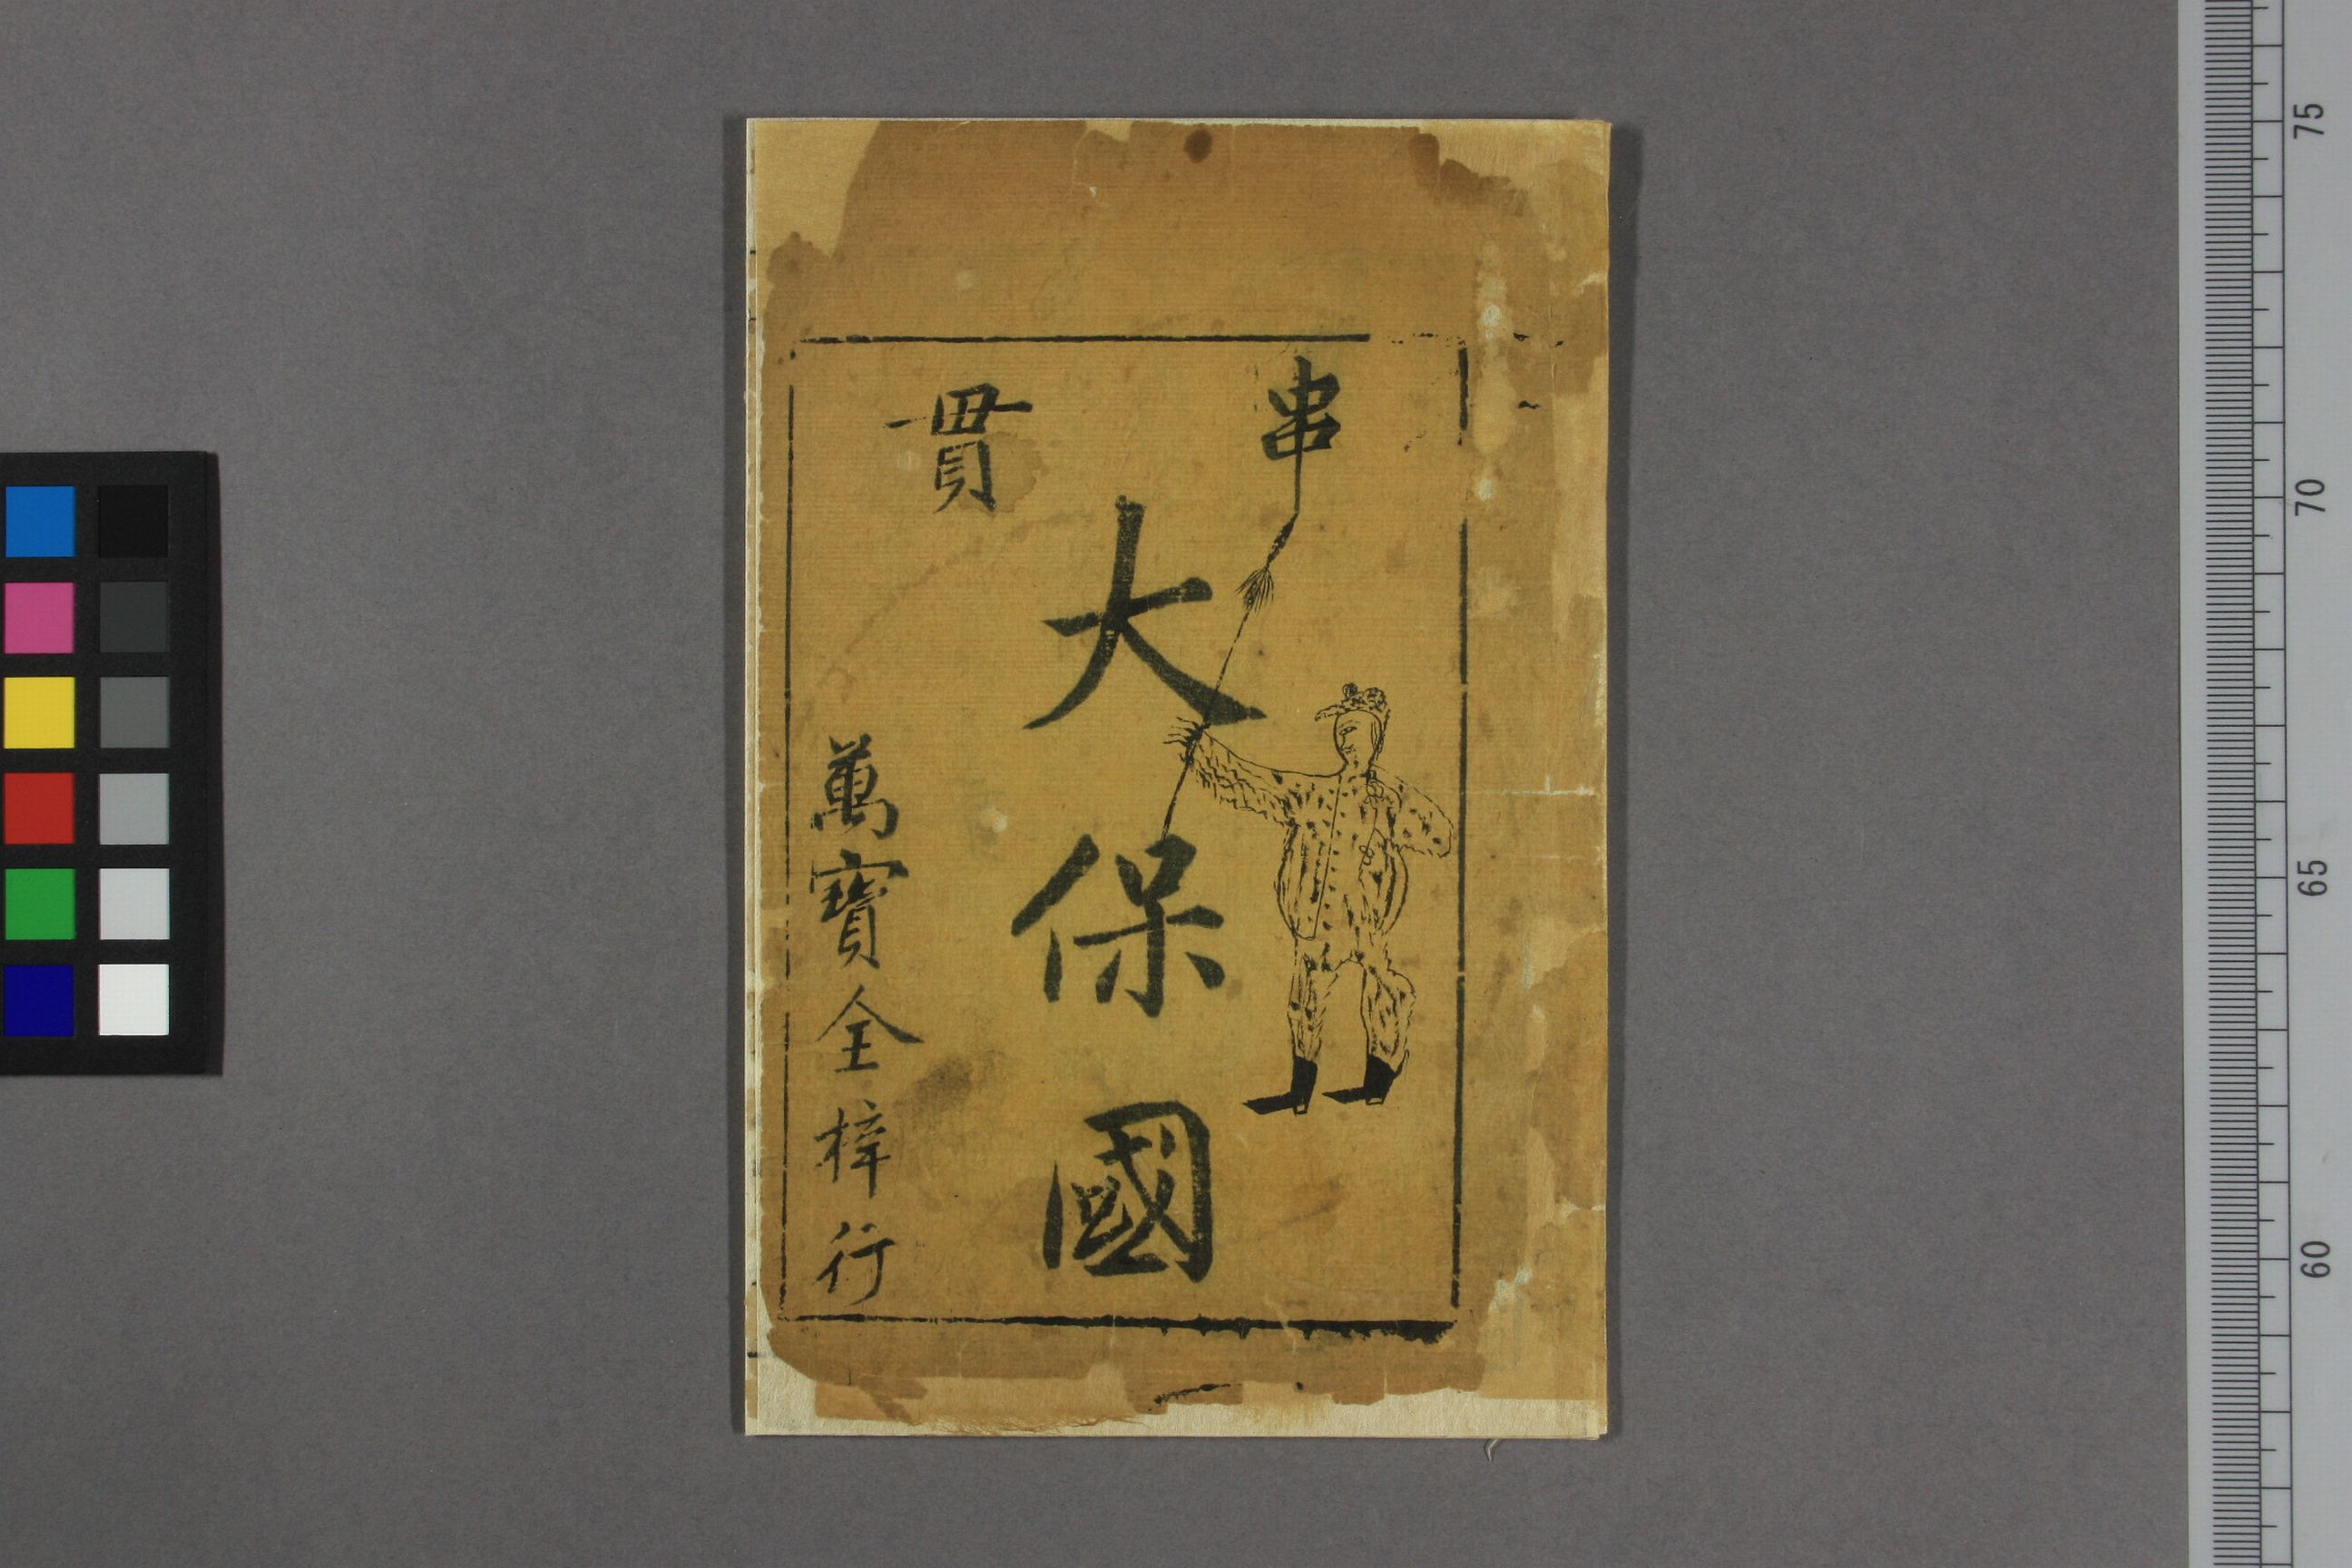 串貫
大保國
萬寶全梓行
75
70
65
60